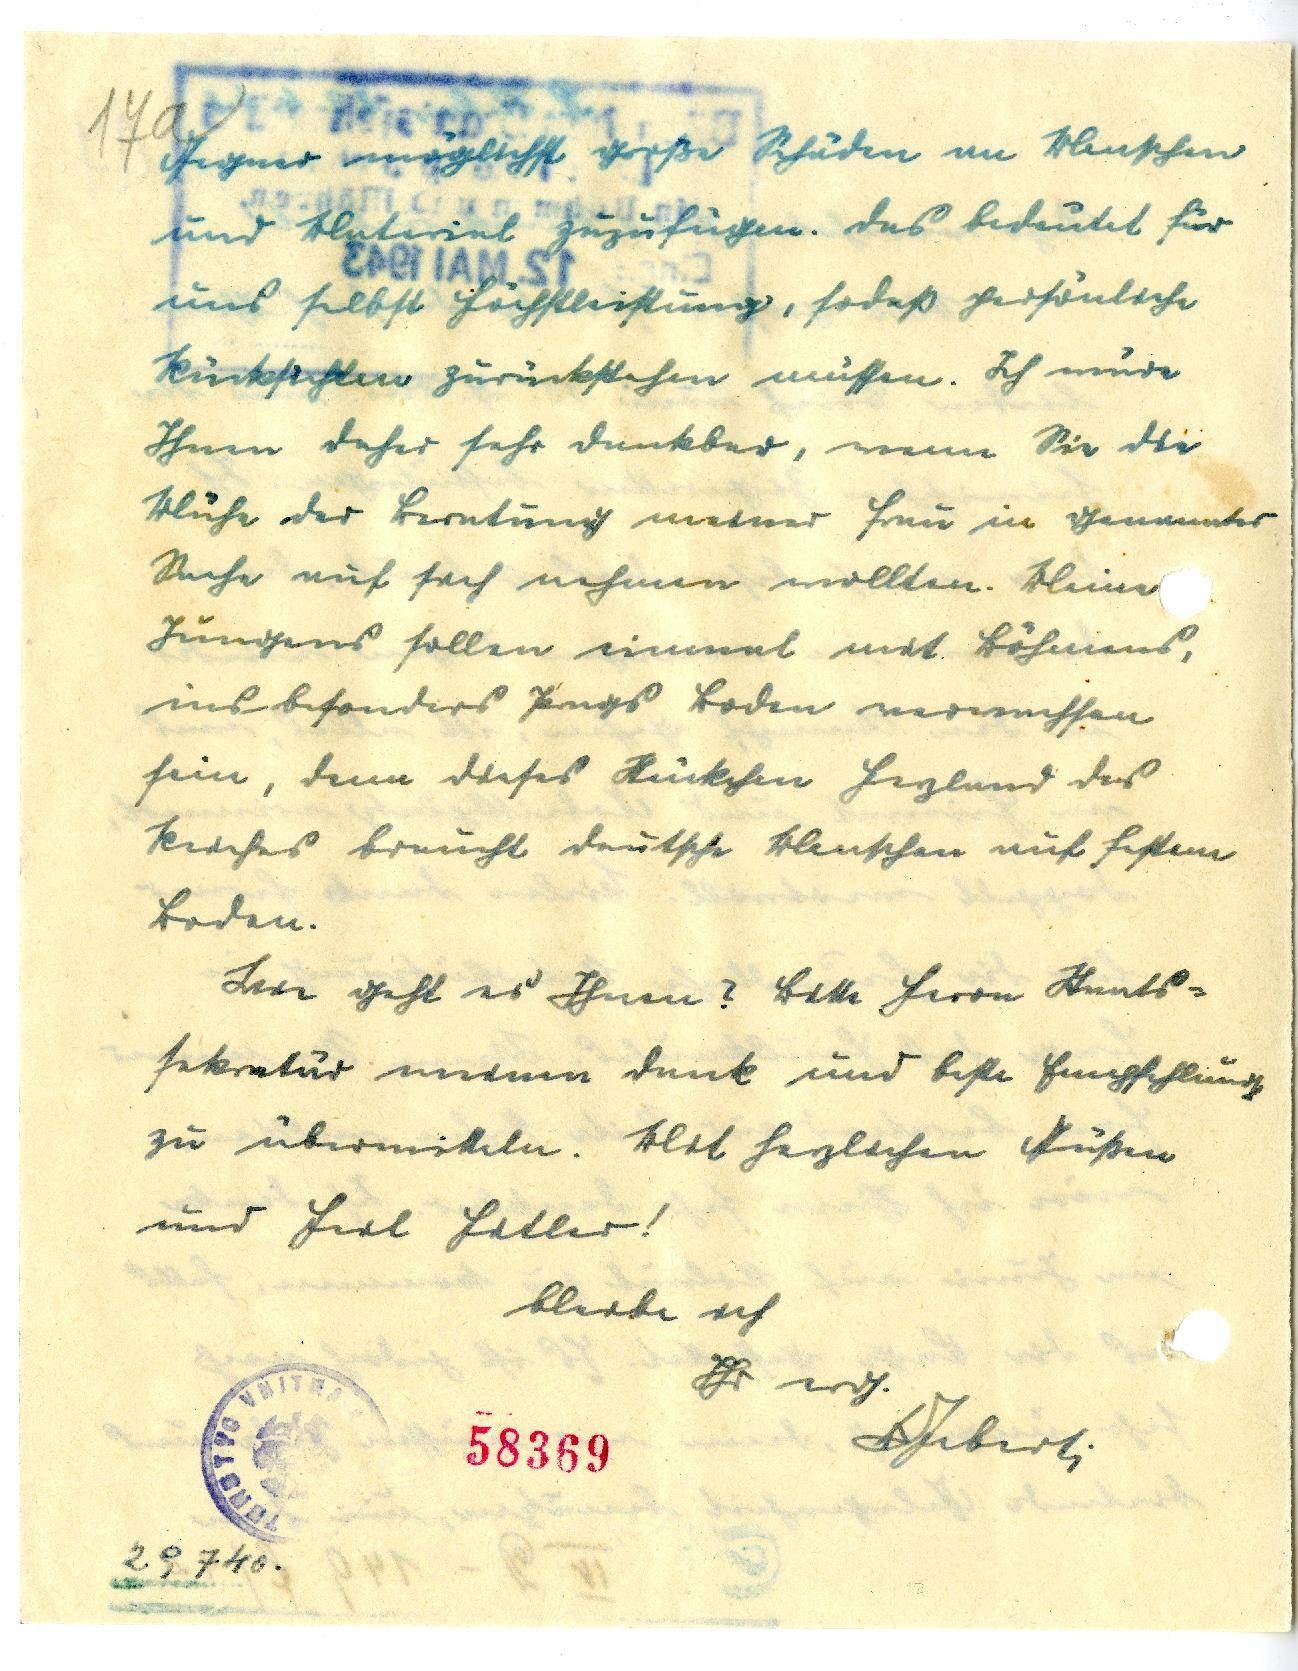 17a
Gegner möglichst große Schäden an Menschen
und Material zuzufügen. Das bedeutet für
uns selbst Höchstleistung, sodaß persönliche
Rücksichten zurückstehen müssen. Ich wäre
Ihnen daher sehr dankbar, wenn Sie die
Mühe der Beratung meiner Frau in genannter
Sache auf sich nehmen wollten. Meine
Jungens sollen einmal mit Böhmens,
insbesonders Prags Boden verwachsen
sein, denn dieses Stückchen Herzland des
Reiches braucht deutsche Menschen auf festem
Boden.
Wie geht es Ihnen? Bitte Herrn Staats=
sekretär meinen Dank und beste Empfehlung
zu übermitteln. Mit herzlichen Grüßen
und Heil Hitler!
bleibe ich
Ihr erg.
58369
12. MAI 1943